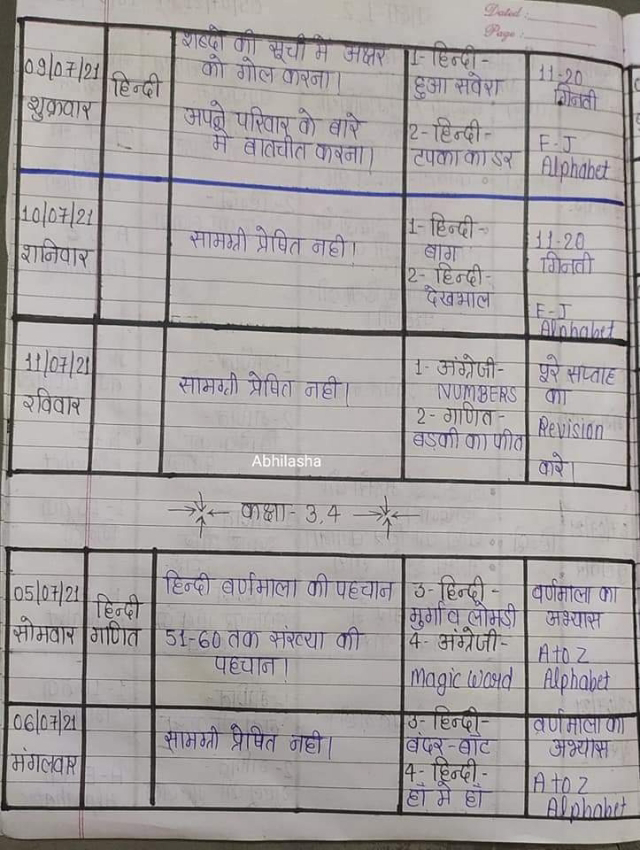 Dated :
Page :
09/07/21
शुक्रवार
हिन्दी
शब्दो की सूची में अक्षर
को गोल करना।
अपने परिवार के बारे
मे बातचीत करना।
1- हिन्दी -
हुआ सवेरा
2- हिन्दी -
टपका का डर
11-20
गिनती
F-J
Alphabet
10/07/21
शनिवार
सामग्री प्रेषित नही।
1- हिन्दी -
बाग
2- हिन्दी -
देखभाल
11-20
गिनती
F-J
Alphabet
11/07/21
रविवार
सामग्री प्रेषित नही।
1- अंग्रेजी-
NUMBERS
2- गणित-
बड़की का फीता
पूरे सप्ताह
का
Revision
करे।
Abhilasha
कक्षा - 3,4
05/07/21
सोमवार
हिन्दी
गणित
हिन्दी वर्णमाला की पहचान
51-60 तक संख्या की
पहचान।
3- हिन्दी -
मुर्गा व लोमड़ी
4- अंग्रेजी-
Magic Word
वर्णमाला का
अभ्यास
A to Z
Alphabet
06/07/21
मंगलवार
सामग्री प्रेषित नही।
3- हिन्दी -
बंदर-बाट
4- हिन्दी -
हाँ मे हाँ
वर्णमाला का
अभ्यास
A to Z
Alphabet